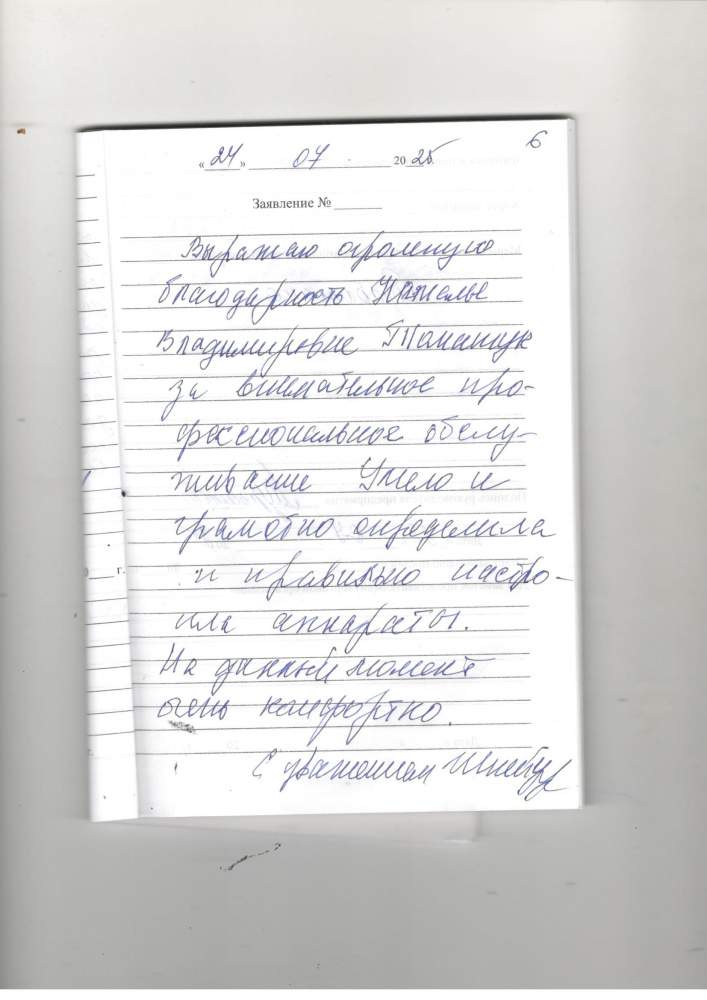 6
«24» 07 2025.
Заявление № ______
Выражаю огромную
благодарность Наталье
Владимировне Томащук
за внимательное про-
фессиональное обслу-
живание Умело и
грамотно определила
и правильно настро-
ила аппараты.
На данный момент
очень комфортно.
С уважением
г.